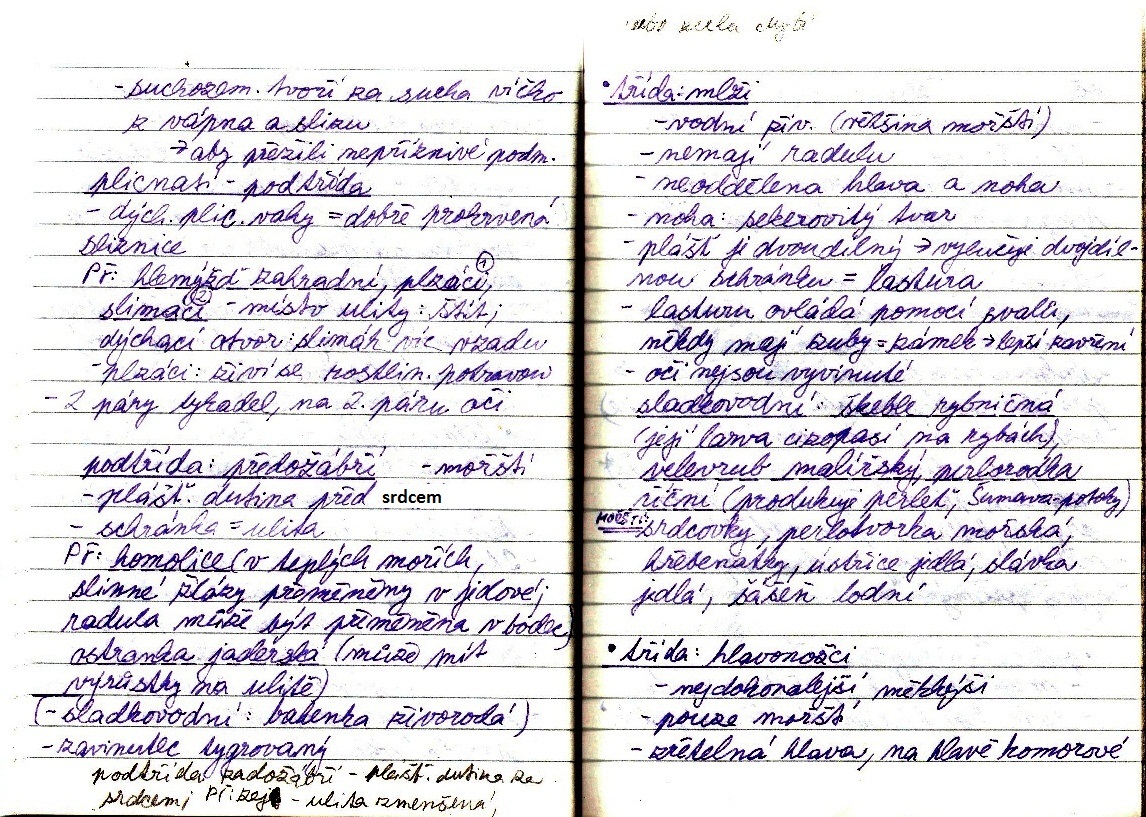 - suchozem. tvoří za sucha víčko
z vápna a slizu
→ aby přežili nepříznivé podm.
plicnatí - podtřída
- dých. plic. vaky = dobře prokrvená
sliznice
Př: hlemýžď zahradní, plzáci, ①
slimáci ② - místo ulity: štít;
dýchací otvor: slimák víc vzadu
- plzáci: živí se rostlin. potravou
- 2 páry tykadel, na 2. páru oči
podtřída: předožábří - mořští
- plášť. dutina před srdcem
- schránka = ulita
Př: homolice (v teplých mořích,
slinné žlázy přeměněny v jedové;
radula může být přeměněna v bodec)
ostranka jaderská (může mít
výrůstky na ulitě)
(- sladkovodní: bahenka živorodá)
- zavinutec tygrovaný
podtřída zadožábří - plášť. dutina za
srdcem; Př: zej - ulita zmenšená,
nebo zcela chybí
• třída: mlži
- vodní živ. (většina mořští)
- nemají radulu
- neoddělena hlava a noha
- noha: sekerovitý tvar
- plášť je dvoudílný → vylučuje dvojdíl-
nou schránku = lastura
- lasturu ovládá pomocí svalů,
někdy mají zuby = zámek → lepší zavření
- oči nejsou vyvinuté
sladkovodní: škeble rybničná
(její larva cizopasí na rybách),
velevrub malířský, perlorodka
říční (produkuje perleť, Šumava-potoky)
MOŘŠTÍ: srdcovky, perlotvorka mořská,
hřebenatky, ústřice jedlá, slávka
jedlá, šášeň lodní
• třída: hlavonožci
- nejdokonalejší měkkýši
- pouze mořšt.
- zřetelná hlava, na hlavě komorové